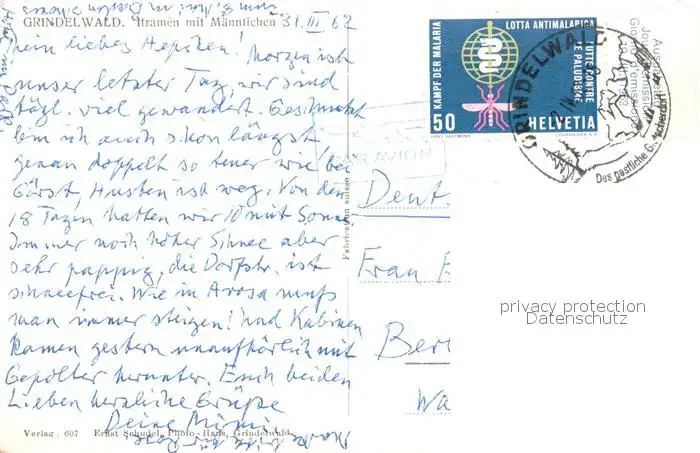 GRINDELWALD. Itramen mit Männlichen 31. III 62
mein liebes
Morgen ist
unser letzter Tag, wir sind
tägl. viel gewandert.
bin ich auch schon längst
genau doppelt so teuer wie bei
Husten ist weg. Von den
18 Tagen hatten wir 10 mit Sonne.
Immer noch hoher Schnee aber
sehr pappig, die Dorfstr. ist
schneefrei. Wie in Arosa muss
man immer steigen! Und Kabinen
kamen gestern unaufhörlich mit
Gepolter herunter. Euch beiden
Lieben herzliche Grüsse
Deine
Verlag. 607 Ernst Schudel, Photo-Haus, Grindelwald
Fabrication suisse
PAR AVION
KAMPF DER MALARIA
LOTTA ANTIMALARICA
LUTTE CONTRE
LE PALUDISME
50 HELVETIA
HANS HARTMANN COURVOISIER S.A.
GRINDELWALD
Das gastliche Gletscherdorf
Deut
Frau
Ber
Wa
privacy protection
Datenschutz